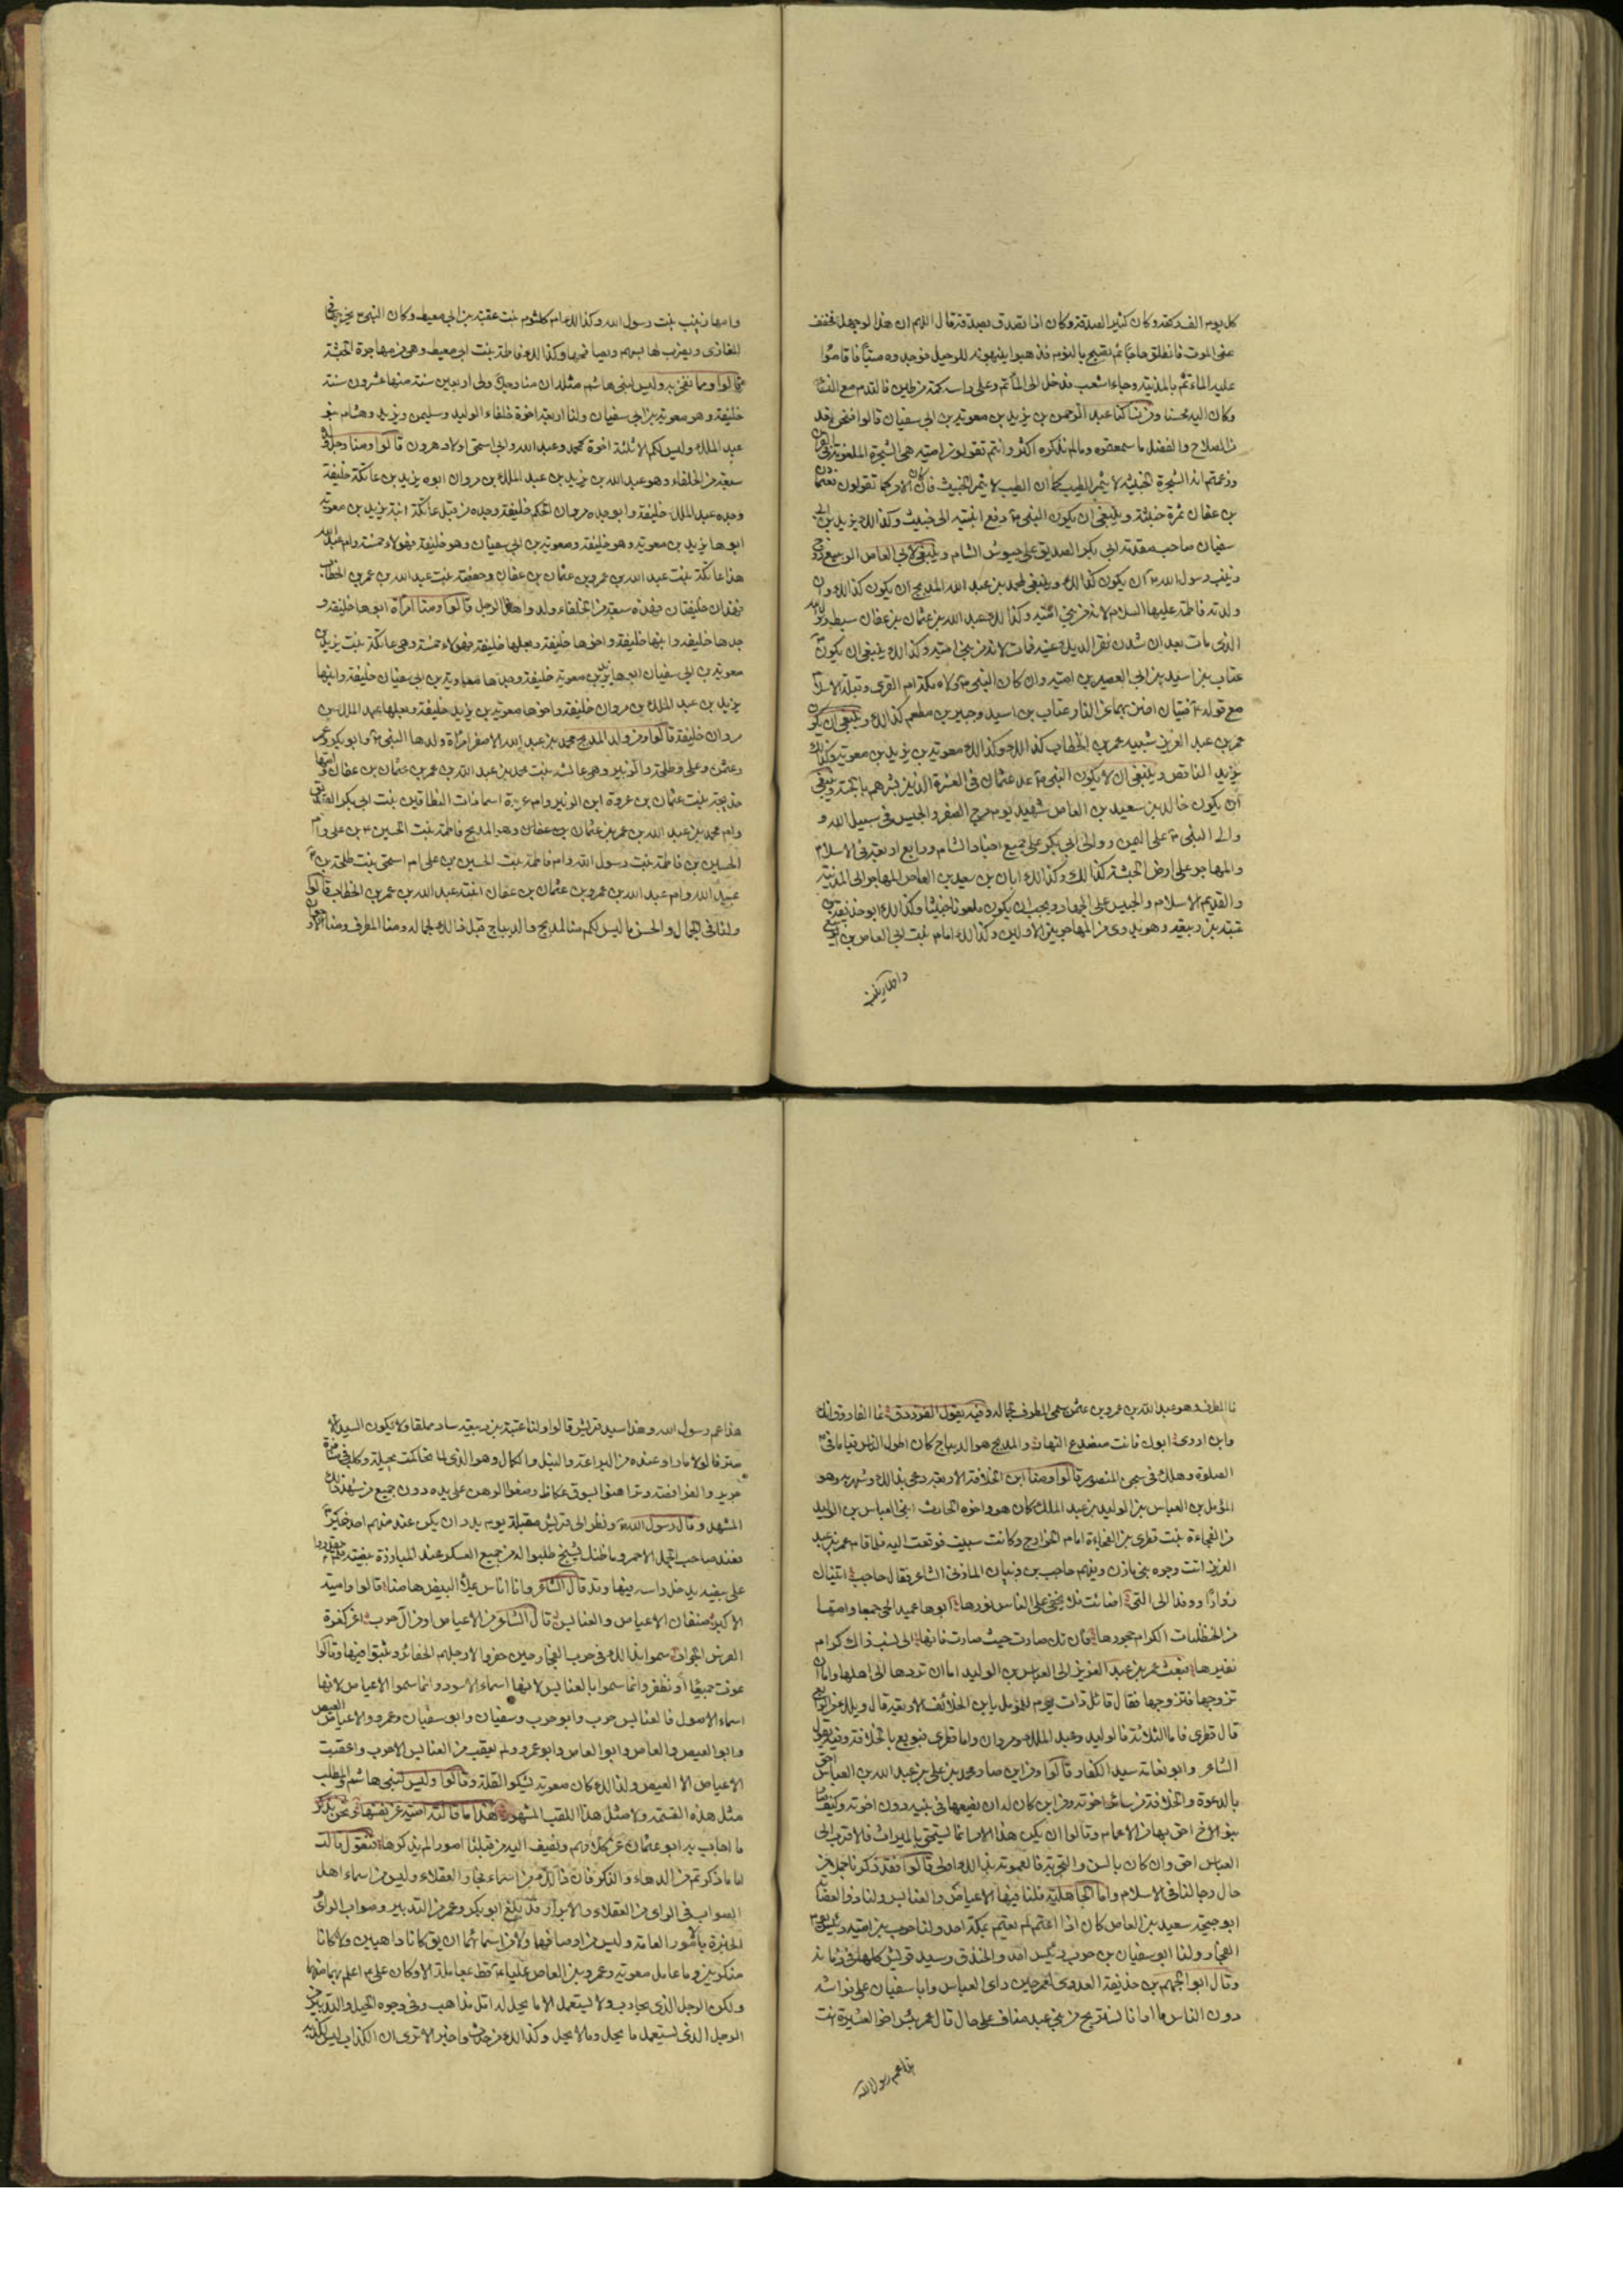 كل يوم الف ركعة وكان كثير الصدقة وكان اذا تصدق بصدقة قال اللهم ان هذا لوجهك فخفف
عنى الموت فانطلق حاجا ثم تصبح بالنوم فذهبوا ينبهونه للرحيل فوجدوه ميتا فاقاموا
عليه الماتم بالمدينة وجاء اشعب فدخل الى الماتم وعلى راسه كمة من طين فالتدم مع النساء
وكان اليه محسنا ومن نساكنا عبد الرحمن بن يزيد بن معوية بن ابى سفيان قالوا فنحن نعد
من الصلاح والفضل ما سمعتموه وما لم نذكره اكثر وانتم تقولون امية هى الشجرة الملعونة فى القران
وزعمتم ان الشجرة الخبيثة لا تثمر الطيب كما ان الطيب لا يثمر الخبيث فان كان الامر كما تقولون فعثمان
بن عفان ثمرة خبيثة وينبغى ان يكون النبى دفع ابنتيه الى خبيث وكذلك يزيد بن ابى
سفيان صاحب مقدمة ابى بكر الصديق على جيوش الشام وينبغى لابى العاص بن الربيع زوج
زينب رسول الله ان يكون كذلك وينبغى لمحمد بن عبد الله المدبج ان يكون كذلك وان
ولدته فاطمة عليها السلام لانه من بنى امية وكذلك عبد الله بن عثمان بن عفان سبط رسول الله
الذى مات بعد ان شدن نقر الديك عينه فمات لانه من بنى امية وكذلك ينبغى ان يكون
عتاب بن اسيد بن ابى العيص بن امية وان كان النبى ولاه مكة ام القرى وقبلة الاسلام
مع قوله فتيان اضن بهما عن النار عتاب بن اسيد وجبير بن مطعم كذلك وينبغى ان يكون
عمر بن عبد العزيز شبيه عمر بن الخطاب كذلك وكذلك معوية بن يزيد بن معوية وكذلك
يزيد الناقص وينبغى ان لا يكون النبى عد عثمان فى العشرة الذين بشرهم بالجنة وينبغى
ان يكون خالد بن سعيد بن العاص شهيد يوم مرج الصفر والحبيس فى سبيل الله و
والى النبى على اليمن ووالى ابى بكر على جميع اجناد الشام ورابع اربعة فى الاسلام
والمهاجر على ارض الحبشة كذلك وكذلك ابان بن سعيد بن العاص المهاجر الى المدينة
والقديم الاسلام والحبيس على الجهاد ويجب ان يكون ملعونا خبيثا وكذلك ابو حذيفة بن
عتبة بن ربيعة وهو بدرى من المهاجرين الاولين وكذلك امامة بنت ابى العاص بن الربيع
وامها زينب
وامها زينب بنت رسول الله وكذلك ام كلثوم بنت عقبة بن ابى معيط وكان النبى يخرجها فى
المغازى ويضرب لها بسهم ويصافحها وكذلك فاطمة بنت ابى معيط وهى من مهاجرة الحبشة
قالوا ومما نفخر به وليس لبنى هاشم مثله ان منا رجلا ولى اربعين سنة منها عشرون سنة
خليفة وهو معوية بن ابى سفيان ولنا اربعة اخوة خلفاء الوليد وسليمن ويزيد وهشام بنو
عبد الملك وليس لكم الا ثلثة اخوة محمد وعبد الله وابى اسحق اولاد هرون قالوا ومنا رجل ولده
سبعة من الخلفاء وهو عبد الله بن يزيد بن عبد الملك بن مروان ابوه يزيد بن عاتكة خليفة
وجده عبد الملك خليفة وابو جده مروان الحكم خليفة وجده من قبل عاتكة ابنة يزيد بن معوية
ابوها يزيد بن معوية وهو خليفة ومعوية بن ابى سفيان وهو خليفة فهؤلاء خمسة وام عبد الله
هذا عاتكة بنت عبد الله بن عمرو بن عثمان بن عفان وحفصة بنت عبد الله بن عمر بن الخطاب
فهذان خليفتان فهذه سبعة من الخلفاء ولدوا هذا الرجل قالوا ومنا امراة ابوها خليفة و
جدها خليفة وابنها خليفة واخوها خليفة وبعلها خليفة فهؤلاء خمسة وهى عاتكة بنت يزيد بن
معوية بن ابى سفيان ابوها يزيد بن معوية خليفة وجدها معاوية بن ابى سفيان خليفة وابنها
يزيد بن عبد الملك بن مروان خليفة واخوها معوية بن يزيد خليفة وبعلها عبد الملك بن
مروان خليفة قالوا ومن ولد المدبج محمد بن عبد الله الاصغر امراة ولدها النبى وابو بكر وعمر
وعثمن وعلى وطلحة والزبير وهى عائشة بنت محمد بن عبد الله بن عمر بن عثمان بن عفان وامها
خديجة بنت عثمان بن عروة ابن الزبير وام عروة اسما ذات النطاقين بنت ابى بكر الصديق
وام محمد بن عبد الله بن عمر بن عثمان بن عفان وهو المدبج فاطمة بنت الحسين بن على وام
الحسين بن فاطمة بنت رسول الله وام فاطمة بنت الحسين بن على ام اسحق بنت طلحة بن
عبيد الله وام عبد الله بن عمرو بن عثمان بن عفان ابنة عبد الله بن عمر بن الخطاب قالوا
ولنا فى الجمال والحسن ما ليس لكم منا المدبج والديباج قيل ذلك لجماله ومنا المطرف ومنا الارجوان
فالمطرف وهو عبد الله بن عمرو بن عثمن سمى المطرف لجماله وفيه يقول الفرزدق نما الفاروق انك
وابن اروى ابوك فانت منصدع النهار والمدبج هو الديباج كان اطول الناس قياما فى
الصلوة وهلك فى سجن المنصور قالوا ومنا ابن الخلائف الاربعة دعى بذلك وشهر به وهو
المؤمل بن العباس بن الوليد بن عبد الملك كان هو واخوه الحارث ابنى العباس بن الوليد
من الفجاءة بنت قطرى بن الفجاءة امام الخوارج وكانت سبيت فوقعت اليه فلما قام عمر بن عبد
العزيز اتت وجوه بنى مازن وفيهم حاجب بن ذبيان المازنى الشاعر فقال حاجب اتيناك
زوارا ووفدا الى التى اضائت فلا يخفى على الناس نورها ابوها عميد الحى جمعا وامها
من الحنظليات الكرام حجورها فان تك صارت حيث صارت فانها الى نسب زاك كرام
نفيرها فبعث عمر بن عبد العزيز الى العباس بن الوليد اما ان تردها الى اهلها واما ان
تزوجها فتزوجها فقال قائل ذات يوم للمؤمل يا ابن الخلائف الاربعة قال ويلك من الرابع
قال قطرى فاما الثلاثة فالوليد وعبد الملك ومروان واما قطرى فبويع بالخلافة وفيه يقول
الشاعر وابو نعامة سيد الكفار قالوا ومن اين صار محمد بن على بن عبد الله بن العباس احق
بالدعوة والخلافة من سائر اخوته ومن اين كان له ان يضعها فى بنيه دون اخوته وكيف صار
بنو الاخ احق بها من الاعمام وقالوا ان يكن هذا الامر انما يستحق بالميراث فالاقرب الى
العباس احق وان كان بالسن والتجربة فالعمومة بذلك اولى قالوا فقد ذكرنا جملا من
حال رجالنا فى الاسلام واما الجاهلية فلنا فيها الاعياص والعنابس ولنا ذو العصابة
ابو احيحة سعيد بن العاص كان اذا اعتم لم يعتم بمكة احد ولنا حرب بن امية رئيس يوم
الفجار ولنا ابو سفيان بن حرب رئيس احد والخندق وسيد قريش كلها فى زمانه
وقال ابو الجهم بن حذيفة العدوى لعمر حين راى العباس وابا سفيان على فراشه
دون الناس ما ارانا نستريح من بنى عبد مناف على حال قال عمر بئس اخو العشيرة انت
هذا عم رسول الله
هذا عم رسول الله وهذا سيد قريش قالوا ولنا عتبة بن ربيعة ساد مملقا ولا يكون السيد الا
مترفا لولا ما راوا عنده من البراعة والنبل والكمال وهو الذى لما تحاكمت بجيلة وكلب فى منافرة
جرير والفرافصة وتراهنوا بسوق عكاظ وضعوا الرهن على يده دون جميع من شهد ذلك
المشهد وقال رسول الله ونظر الى قريش مقبلة يوم بدر ان يكن عند منهم احد خير
فعند صاحب الجمل الاحمر وما ظنك بشيخ طلبوا له من جميع العسكر عند المبارزة بيضة فلم يقدروا
على بيضة يدخل راسه فيها وقد قال الشاعر وانا اناس يملأ البيض هامنا قالوا وامية
الاكبر صنفان الاعياص والعنابس قال الشاعر من الاعياص او من آل حرب اغر كغرة
الفرس الجواد سموا بذلك فى حرب الفجار حين حفروا لارجلهم الحفائر وثبتوا فيها وقالوا
نموت جميعا او نظفر وانما سموا بالعنابس لانها اسماء الاسود وانما سموا الاعياص لانها
اسماء الاصول فالعنابس حرب وابو حرب وسفيان وابو سفيان وعمرو والاعياص العيص
وابو العيص والعاص وابو العاص وابو عمرو ولم يعقب من العنابس الا حرب واعقبت
الاعياص الا العيص ولذلك كان معوية يشكو القلة وقالوا وليس لبنى هاشم والمطلب
مثل هذه القسمة ولا مثل هذا اللقب المشهور هذا ما قالته امية عن نفسها ونحن نذكر
ما اجاب به ابو عثمان عن كلامهم ونضيف اليه من قبلنا امورا لم يذكرها فنقول قالت
اما ما ذكرتم من الدهاء والنكر فان ذلك من اسماء فجار العقلاء وليس من اسماء اهل
الصواب فى الراى من العقلاء والابرار وقد بلغ ابو بكر وعمر من التدبير وصواب الراى
والخبرة بامور العامة وليس من اوصافهما ولا من اسمائهما ان يق كانا داهيين ولا كانا
منكرين وما عامل معوية وعمرو بن العاص عليا قط بمعاملة الا وكان على اعلم بها منهما
ولكن الرجل الذى يحارب ولا يستعمل الا ما يحل له اقل مذاهب فى وجوه الحيل والتدبير من
الرجل الذى يستعمل ما يحل وما لا يحل وكذلك من حدث واخبر الا ترى ان الكذاب ليس لكذبه